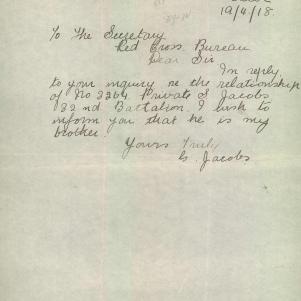 19/4/18.
To The Secretary
Red Cross. Bureau
Dear Sir
In reply
to your inquiry re the relationship
of No 3264 Private S Jacobs
32 nd. Battalion. I wish to
inform you that he is my
brother.
Yours Truly
G. Jacobs